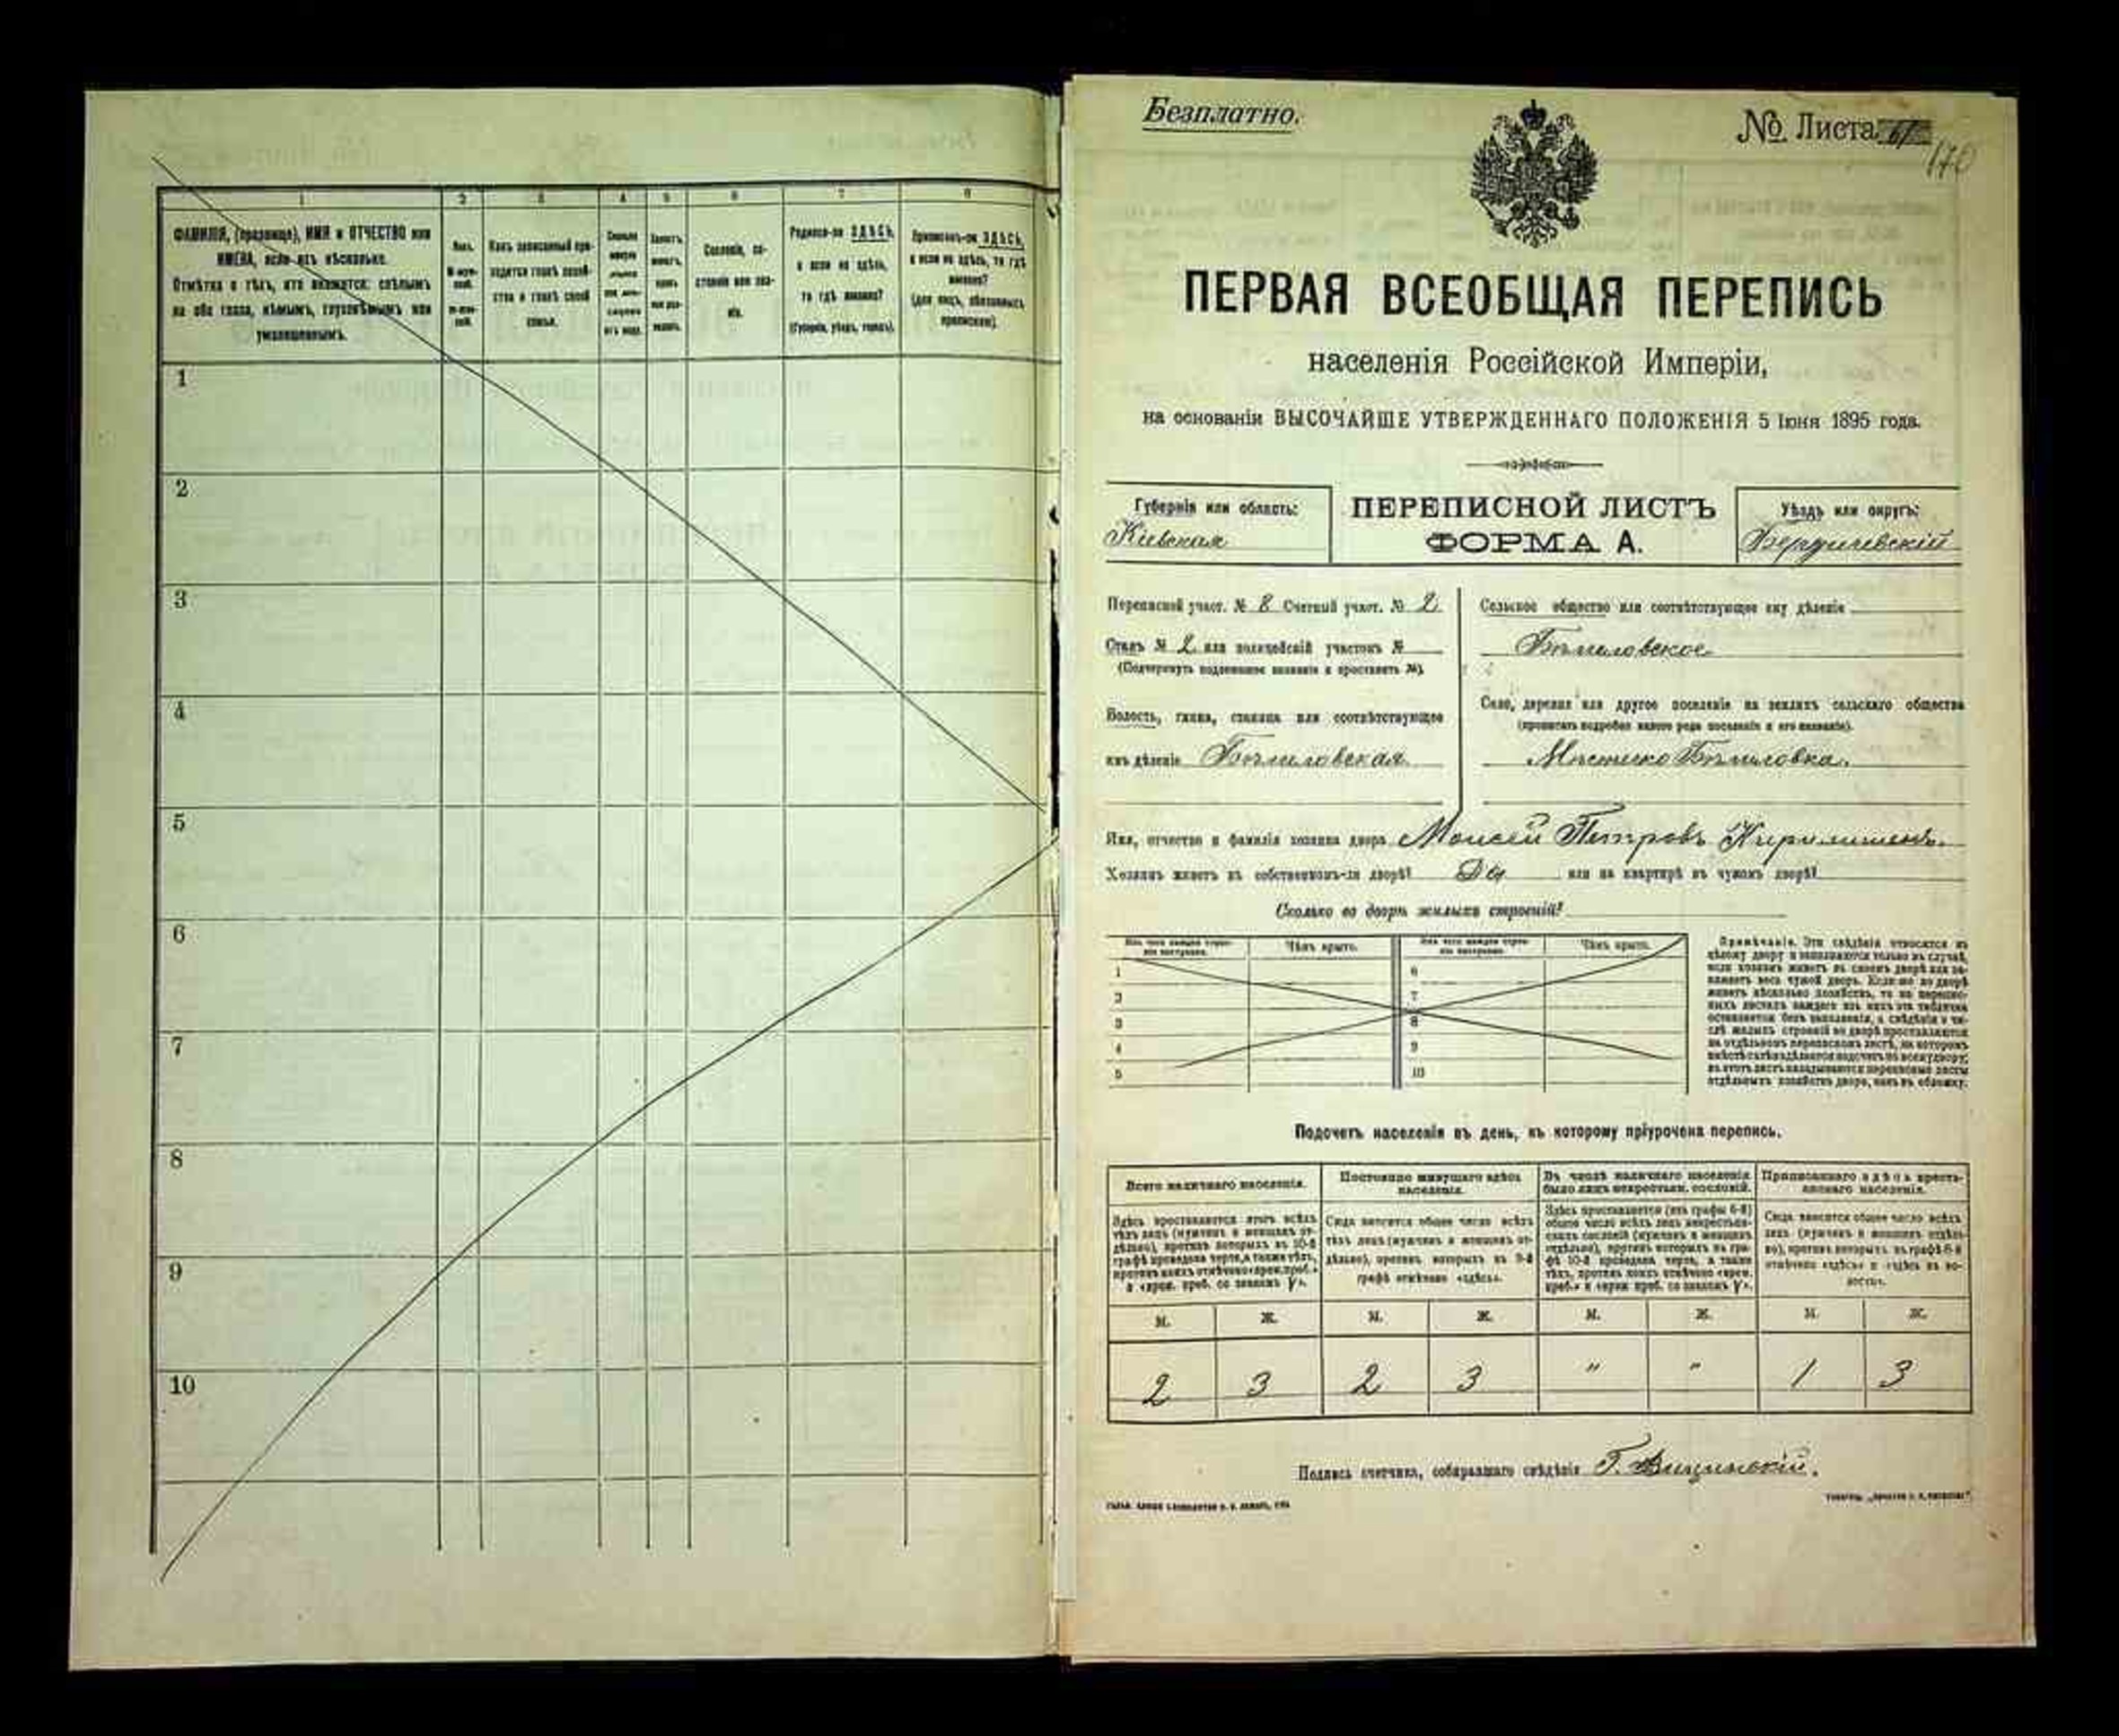 1 2 3 4 5 6 7 8
ФАМИЛІЯ, (прозвище), ИМЯ и ОТЧЕСТВО или
ИМЕНА, если ихъ нѣсколько.
Отмѣтка о тѣхъ, кто окажется: слѣпымъ
на оба глаза, нѣмымъ, глухонѣмымъ или
умалишеннымъ.
Полъ.
Какъ записанный при-
ходится главѣ хозяй-
ства и главѣ своей
семьи.
Сословіе, со-
стояніе или зва-
ніе.
Родился-ли ЗДѢСЬ,
а если не здѣсь,
то гдѣ именно?
(Губернія, уѣздъ, городъ).
Приписанъ-ли ЗДѢСЬ,
а если не здѣсь, то гдѣ
именно?
(для лицъ, обязанныхъ
припиской).
1
2
3
4
5
6
7
8
9
10
Безплатно.
№ Листа 61
170
ПЕРВАЯ ВСЕОБЩАЯ ПЕРЕПИСЬ
населенія Россійской Имперіи,
на основаніи ВЫСОЧАЙШЕ УТВЕРЖДЕННАГО ПОЛОЖЕНІЯ 5 Іюня 1895 года.
Губернія или область:
Кіевская
ПЕРЕПИСНОЙ ЛИСТЪ
ФОРМА А.
Уѣздъ или округъ:
Бердичевскій
Переписной участ. № 8 Счетный участ. № 2
Станъ № 2 или полицейскій участокъ №
(Подчеркнуть подлежащее названіе и проставить №).
Волость, гмина, станица или соотвѣтствующее
имъ дѣленіе Бѣлиловская
Сельское общество или соотвѣтствующее ему дѣленіе
Бѣлиловское
Село, деревня или другое поселеніе на земляхъ сельскаго общества
(прописать подробно какого рода поселеніе и его названіе).
Мѣстечко Бѣлиловка.
Имя, отчество и фамилія хозяина двора Моисей Петровъ
Хозяинъ живетъ въ собственномъ-ли дворѣ? Да или на квартирѣ въ чужомъ дворѣ?
Сколько во дворѣ жилыхъ строеній?
Изъ чего каждое строе-
ніе построено.
Чѣмъ крыто.
Изъ чего каждое строе-
ніе построено.
Чѣмъ крыто.
1 6
2 7
3 8
4 9
5 10
Примѣчаніе. Эти свѣдѣнія относятся къ
цѣлому двору и заполняются только въ случаѣ,
если хозяинъ живетъ въ своемъ дворѣ или за-
нимаетъ весь чужой дворъ. Если же во дворѣ
живетъ нѣсколько хозяйствъ, то на перепис-
ныхъ листахъ каждаго изъ нихъ эта табличка
оставляется безъ заполненія, а свѣдѣнія о чи-
слѣ жилыхъ строеній во дворѣ проставляются
на отдѣльномъ переписномъ листѣ, на которомъ
вмѣстѣ съ тѣмъ дѣлается подсчетъ по всему двору;
въ этотъ листъ вкладываются переписные листы
отдѣльныхъ хозяйствъ двора, какъ въ обложку.
Подсчетъ населенія въ день, къ которому пріурочена перепись.
Всего наличнаго населенія.
Здѣсь проставляется итогъ всѣхъ
тѣхъ лицъ (мужчинъ и женщинъ от-
дѣльно), противъ которыхъ въ 10-й
графѣ проведена черта, а также тѣхъ,
противъ коихъ отмѣчено «врем. преб.»
и «врем. преб. со знакомъ V».
Постоянно живущаго здѣсь
населенія.
Сюда вносится общее число всѣхъ
тѣхъ лицъ (мужчинъ и женщинъ от-
дѣльно), противъ которыхъ въ 9-й
графѣ отмѣчено «здѣсь».
Въ числѣ наличнаго населенія
было лицъ некрестьян. сословій.
Здѣсь проставляется (изъ графы 6-й)
общее число всѣхъ лицъ некрестьян-
скихъ сословій (мужчинъ и женщинъ
отдѣльно), противъ которыхъ въ гра-
фѣ 10-й проведена черта, а также
тѣхъ, противъ коихъ отмѣчено «врем.
преб.» и «врем. преб. со знакомъ V».
Приписаннаго здѣсь кресть-
янскаго населенія.
Сюда вносится общее число всѣхъ
лицъ (мужчинъ и женщинъ отдѣль-
но), противъ которыхъ въ графѣ 8-й
отмѣчено «здѣсь» и «здѣсь въ во-
лости».
М. Ж. М. Ж. М. Ж. М. Ж.
2 3 2 3 " " 1 3
Подпись счетчика, собиравшаго свѣдѣнія Г.